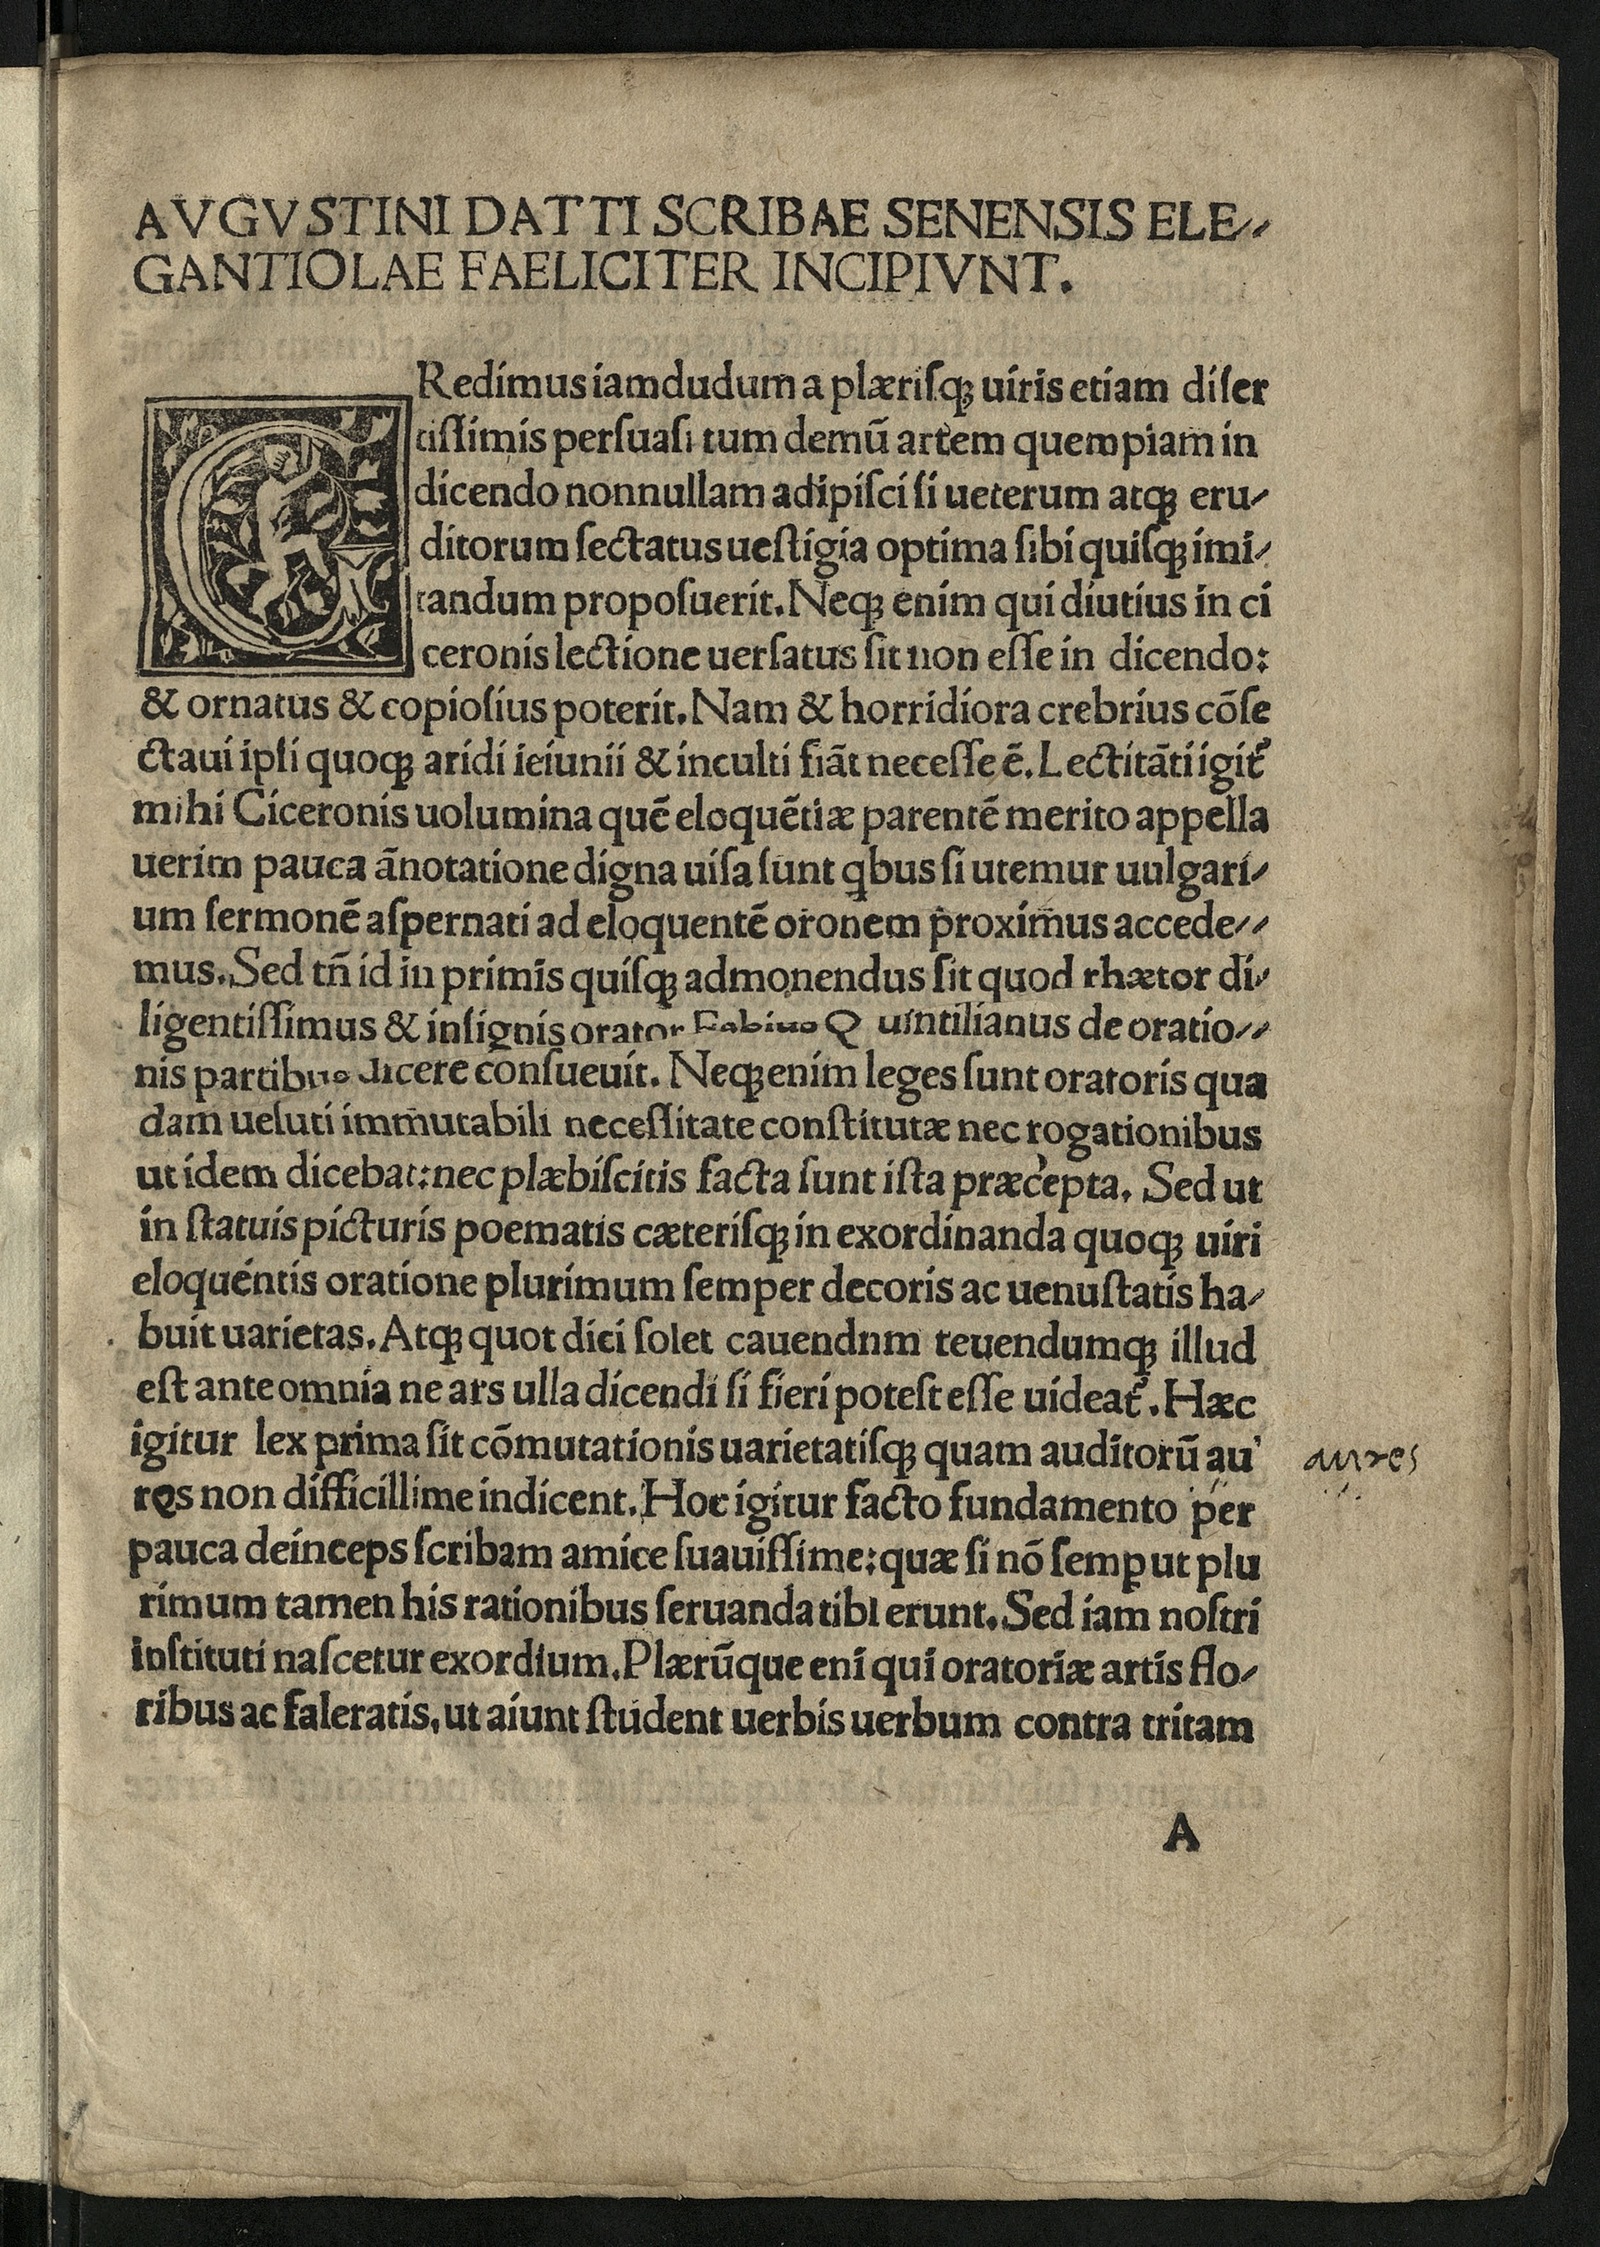 AVGVSTINI DATTI SCRIBAE SENENSIS ELE⸗
GANTIOLAE FAELICITER INCIPIVNT.
CRedimus iamdudum a plæriſqꝫ uiris etiam diſer
tiſſimis perſuaſi tum demū artem quempiam in
dicendo nonnullam adipiſci ſi ueterum atqꝫ eru⸗
ditorum ſectatus ueſtigia optima ſibi quiſqꝫ imi⸗
tandum propoſuerit. Neqꝫ enim qui diutius in ci
ceronis lectione uerſatus ſit non eſſe in dicendo:
& ornatus & copioſius poterit. Nam & horridiora crebrius cōſe
ctaui ipſi quoqꝫ aridi ieiunii & inculti fiāt neceſſe ē. Lectitāti igit᷑
mihi Ciceronis uolumina quē eloquētiæ parentē merito appella
uerim pauca ānotatione digna uiſa ſunt qbus ſi utemur uulgari⸗
um ſermonē aſpernati ad eloquentē oronem proximus accede⸗
mus. Sed tn̄ id in primis quiſqꝫ admonendus ſit quod rhætor di⸗
ligentiſſimus & inſignis orator Fabius Q uintilianus de oratio⸗
nis partibus dicere conſueuit. Neqꝫ enim leges ſunt oratoris qua
dam ueluti im̄utabili neceſſitate conſtitutæ nec rogationibus
ut idem dicebat: nec plæbiſcitis facta ſunt iſta præcepta. Sed ut
in ſtatuis picturis poematis cæteriſqꝫ in exordinanda quoqꝫ uiri
eloquentis oratione plurimum ſemper decoris ac uenuſtatis ha⸗
buit uarietas. Atqꝫ quot dici ſolet cauendnm teuendumqꝫ illud
eſt ante omnia ne ars ulla dicendi ſi fieri poteſt eſſe uideat᷑. Hæc
igitur lex prima ſit cōmutationis uarietatiſqꝫ quam auditorū au'
res non difficillime indicent. Hoc igitur facto fundamento per
aures
pauca deinceps ſcribam amice ſuauiſſime: quæ ſi nō ſemꝑ ut plu
rimum tamen his rationibus ſeruanda tibi erunt. Sed iam noſtri
inſtituti naſcetur exordium. Plærūque eni qui oratoriæ artis flo⸗
ribus ac faleratis, ut aiunt ſtudent uerbis uerbum contra tritam
A